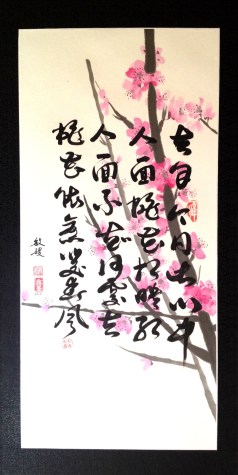 去年今日此門中
人面桃花相映紅
人面不知何處去
桃花依舊笑春風
敏媛